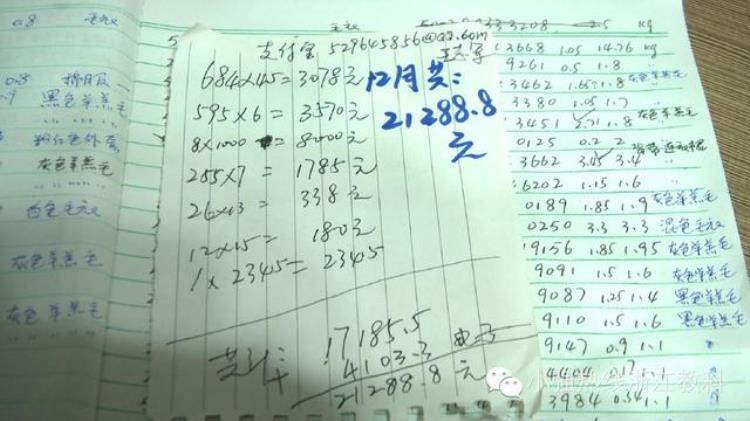 0.8 毛衣
黑色羊羔毛
粉红色外套
灰色羊羔毛
白色毛衣
灰色羊羔毛
灰色羊羔毛
支付宝 529645856@qq.com
684×4.5=3078元
595×6=3570元
8×1000=8000元
255×7=1785元
26×13=338元
12×15=180元
1×234.5=234.5
共计: 17185.5
+4103.3
21288.8元
12月共:
21288.8
元
3668 1.05 14.76 kg
9261 0.5 1.8
3462 1.65 1.8 灰色羊羔毛
3380 1.05 1.7
3451 2.71 1.8 灰色羊羔毛
0125 0.2 2
3662 3.45 3.4
6202 1.15 1.6
0189 1.85 1.9 灰色羊羔毛
0250 3.3 3.3 混色毛衣
19156 1.85 1.95 灰色羊羔毛
9091 1.5 1.6 灰色羊羔毛
9087 1.25 1.4 黑色羊羔毛
9110 1.5 1.6 黑色羊羔毛
9147 0.9 1.1
4404 0.17 1.1
3984 0.54 1.1
小强热线浙江教科